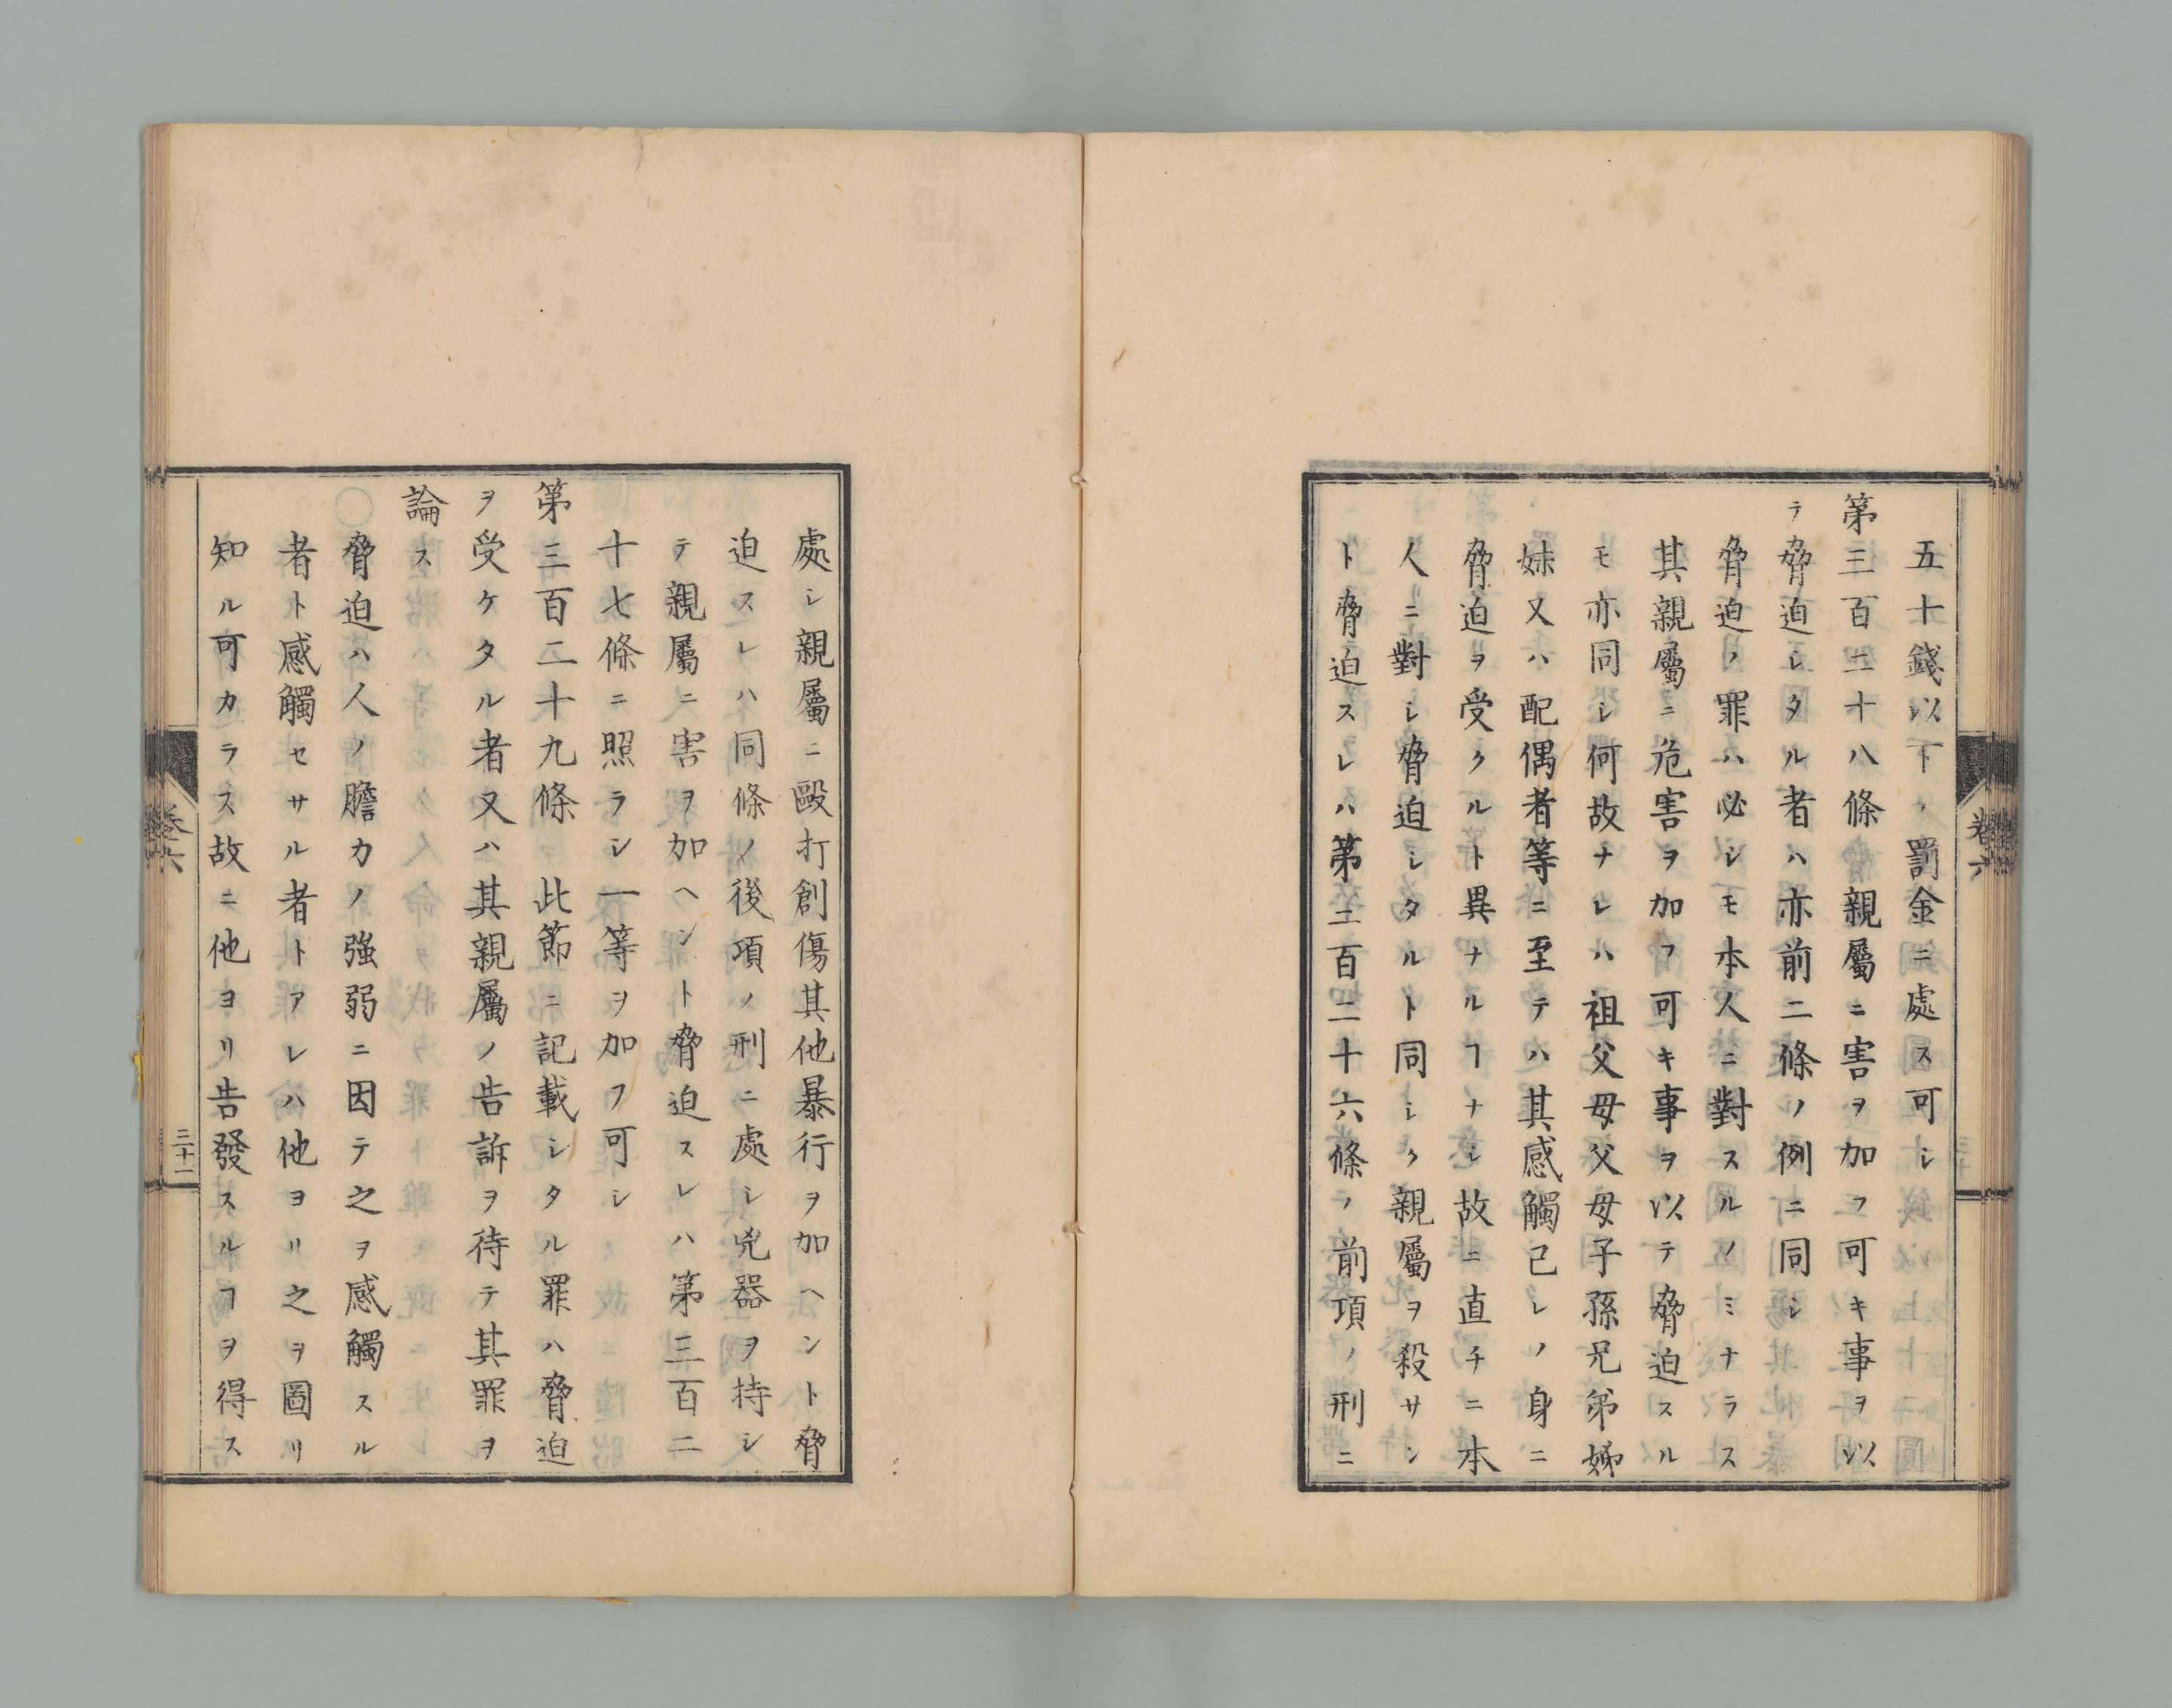 五十錢以下ノ罰金ニ處ス可シ
第三百二十八條　親屬ニ害ヲ加フ可キ事ヲ以
テ脅迫シタル者ハ亦前二條ノ例ニ同シ
脅迫ノ罪ハ必シモ本人ニ對スルノミナラス
其親屬ニ危害ヲ加フ可キ事ヲ以テ脅迫スル
モ亦同シ何故ナレハ祖父母父母子孫兄弟姊
妹又ハ配偶者等ニ至テハ其感觸己レノ身ニ
脅迫ヲ受クルト異ナルヿナシ故ニ直チニ本
人ニ對シ脅迫シタルト同シク親屬ヲ殺サン
ト脅迫スレハ第三百二十六條ノ前項ノ刑ニ
卷六
處シ親屬ニ毆打創傷其他暴行ヲ加ヘント脅
迫スレハ同條ノ後項ノ刑ニ處シ兇器ヲ持シ
テ親屬ニ害ヲ加ヘント脅迫スレハ第三百二
十七條ニ照ラシ一等ヲ加フ可シ
第三百二十九條　此節ニ記載シタル罪ハ脅迫
ヲ受ケタル者又ハ其親屬ノ告訴ヲ待テ其罪ヲ
論ス
脅迫ハ人ノ膽力ノ強弱ニ因テ之ヲ感觸スル
者ト感觸セサル者トアレハ他ヨリ之ヲ圖リ
知ル可カラス故ニ他ヨリ告發スルヿヲ得ス
卷六
三十一